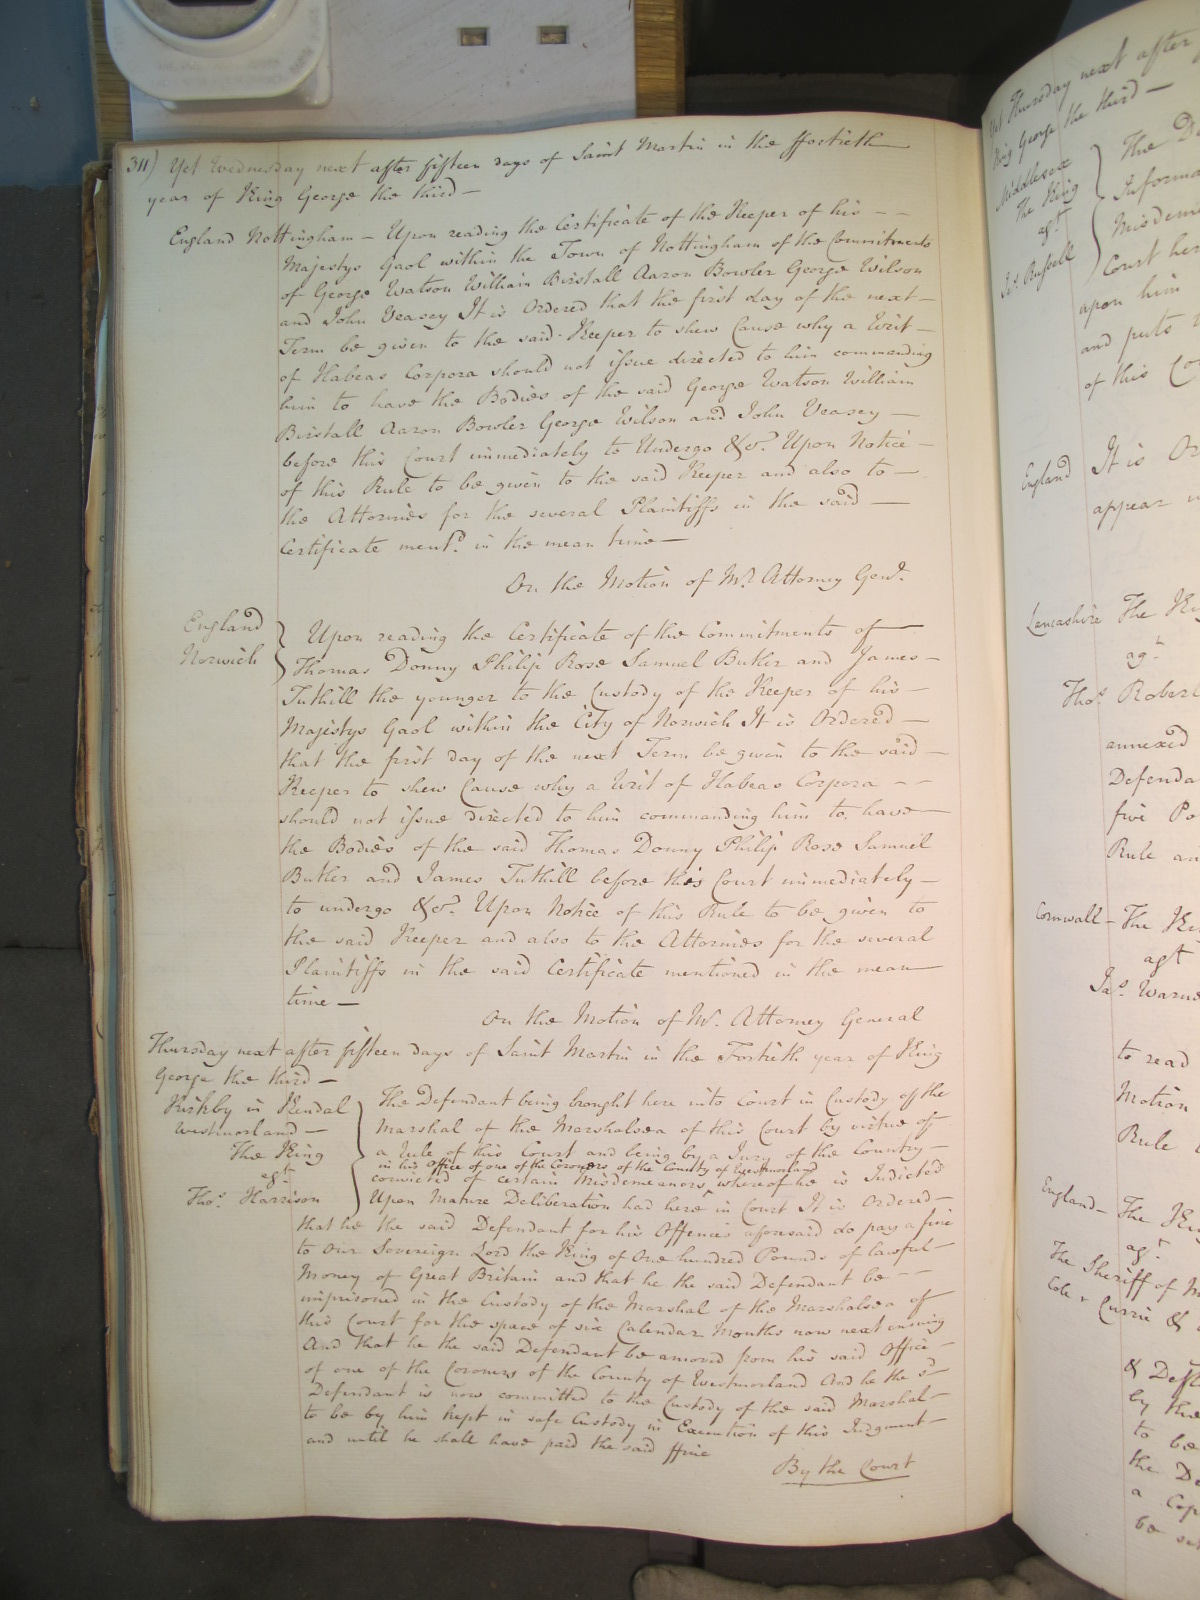 311) Yet Wednesday next after fifteen days of Saint Martin in the ffortieth
year of King George the third —
England Nottingham — Upon reading the Certificate of the Keeper of his - -
Majestys Gaol within the Town of Nottingham of the Commitments
of George Watson William Birstall Aaron Bowler George Wilson
and John Veasey It is Ordered that the first day of the next —
Term be given to the said Keeper to shew Cause why a Writ —
of Habeas Corpora should not issue directed to him commanding
him to have the Bodies of the said George Watson William
Birstall Aaron Bowler George Wilson and John Veasey —
before this Court immediately to Undergo &c. Upon Notice —
of this Rule to be given to the said Keeper and also to —
the Attornies for the several Plaintiffs in the said —
Certificate ment.d in the mean time —
On the Motion of Mr. Attorney Genl.
England
Norwich
Upon reading the Certificate of the Commitments of —
Thomas Donny Philip Rose Samuel Butler and James —
Tuthill the younger to the Custody of the Keeper of his —
Majestys Gaol within the City of Norwich It is Ordered —
that the first day of the next Term be given to the said —
Keeper to shew Cause why a Writ of Habeas Corpora - -
should not issue directed to him commanding him to have —
the Bodies of the said Thomas Donny Philip Rose Samuel
Butler and James Tuthill before this Court immediately —
to undergo &c. Upon Notice of this Rule to be given to
the said Keeper and also to the Attornies for the several
Plaintiffs in the said Certificate mentioned in the mean —
time —
On the Motion of Mr. Attorney General
Thursday next after fifteen days of Saint Martin in the Fortieth year of King
George the third —
Kirkby in Kendal
Westmorland —
The King
agt.
Thos. Harrison
The Defendant being brought here into Court in Custody of the
Marshal of the Marshalsea of this Court by virtue of
a Rule of this Court and being by a Jury of the Country
in his office of one of the Coroners of the County of Westmorland
convicted of certain Misdemeanors whereof he is Indicted
Upon Mature Deliberation had here in Court It is Ordered —
that he the said Defendant for his Offences aforesaid do pay a fine
to our Sovereign Lord the King of One hundred Pounds of lawful —
Money of Great Britain and that he the said Defendant be - -
imprisoned in the Custody of the Marshal of the Marshalsea of
this Court for the space of six Calendar Months now next ensuing
And that he the said Defendant be amoved from his said Office —
of one of the Coroners of the County of Westmorland And he the sd.
Defendant is now committed to the Custody of the said Marshal —
to be by him kept in safe Custody in Execution of this Judgment —
and until he shall have paid the said ffine
By the Court
Yet Thursday next after
King George the third —
Middlesex
The King
agt.
Jas. Russell
The
Informa
Misdem
Court her
upon him
and puts
of this Co
England It is Or
appear
Lancashire The Ki
agt.
Thos. Robert
annexed
Defenda
five Po
Rule an
Cornwall — The Ki
agt
Jas. Warn
to read
Motion
Rule
England — The Ki
agt.
The Sheriff of M
Cole & Currie &
& Deft
by the
to be
the De
a Cop
be se